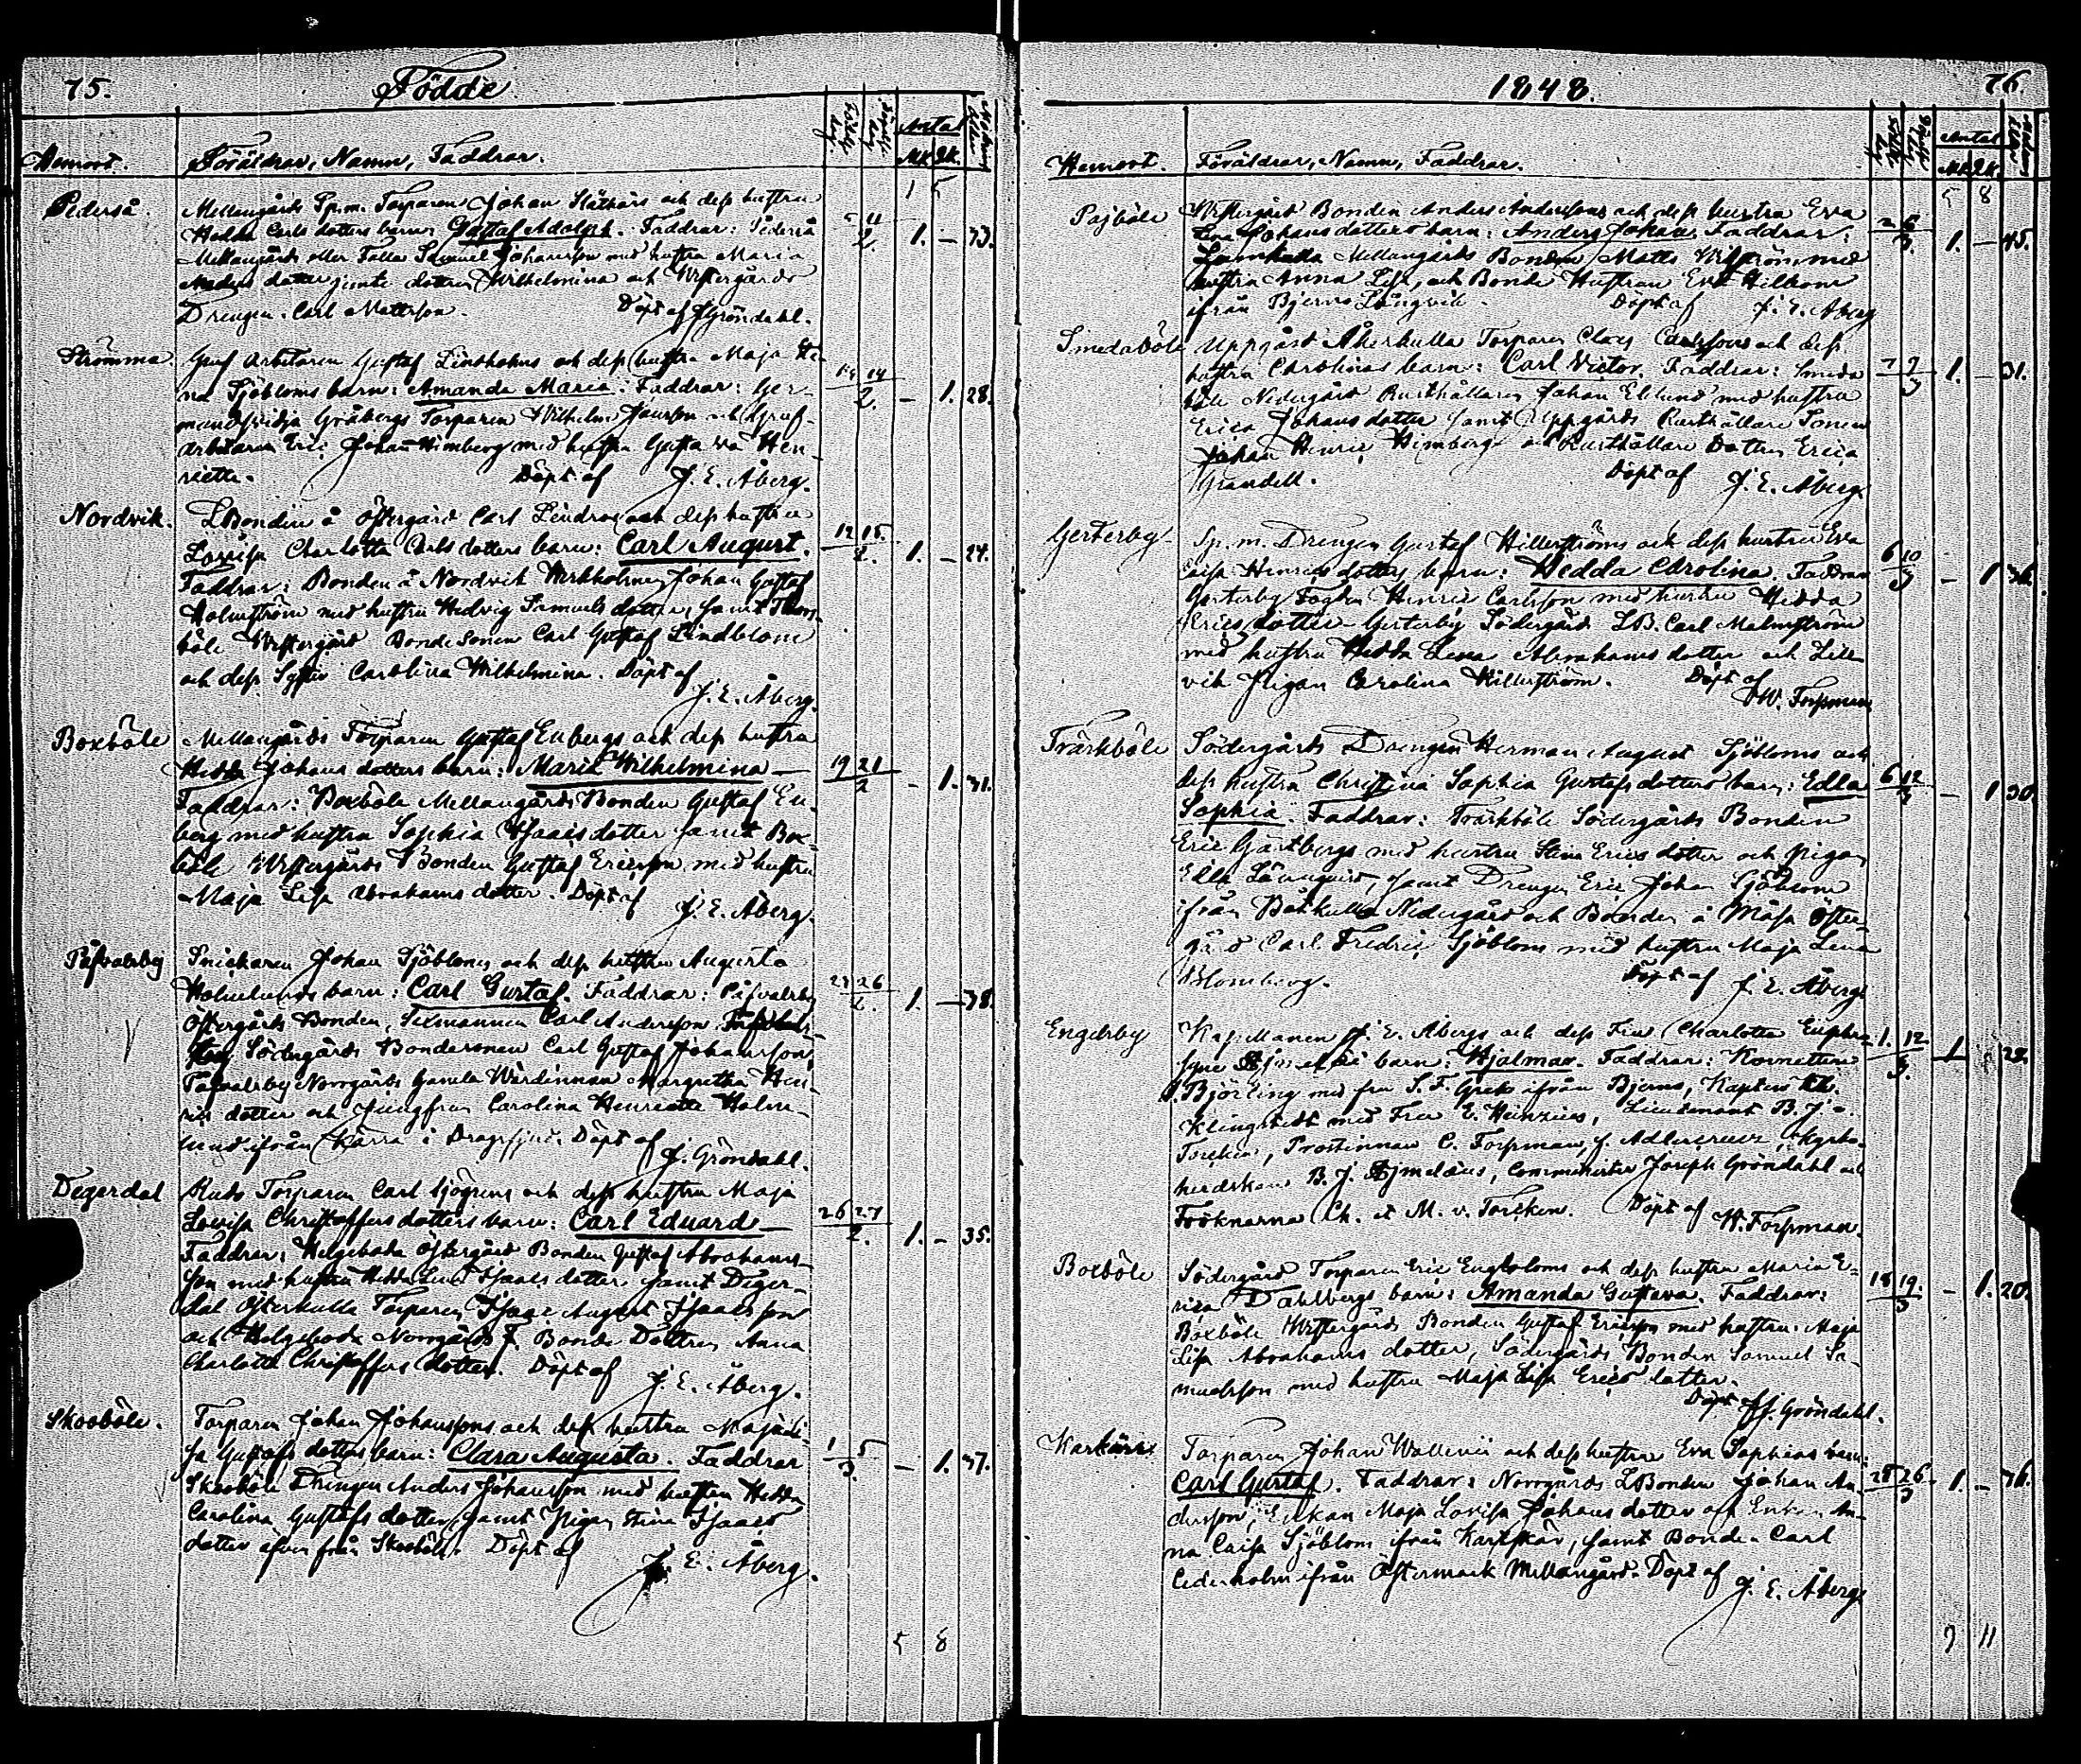 75. Födde
Hemort. Föräldrar, Namn, Faddrar. Antal
Mk. Qk.
1 5
Pederså. Mellangårds Sp.m. Torparen Johan och dess hustru
Carls dotters barn Gustaf Adolph. Faddrar: Pederså 11 2. 1. – 33.
Mellangårds Samuel Johansson med hustru Maria
dotter jemte dottren Wilhelmina och Westergårds
Drengen Carl Mattsson. Döpt af J Gröndahl.
Strömma Gruf arbetaren Gustaf Lindholms och dess hustru Maja
na Sjöbloms barn: Amanda Maria. Faddrar: Ger- 14 2. – 1. 28.
Gråbergs Torparen Wilhelm och Gruf-
arbetaren Eric Johan Himberg med hustru Gustava Hen-
riette. Döpt af J. E. Åberg.
Nordvik. LBonden å Östergård Carl Lindros och dess hustru
Lovisa Charlotta Carls dotters barn: Carl August. 12 15. 2. 1. – 24.
Faddrar: Bonden å Nordvik Johan Gustaf
Holmström med hustru Hedvig Samuels dotter, samt
böle Westergård Bonde Sonen Carl Gustaf Lindblom
och dess Syster Carolina Wilhelmina. Döpt af
J. E. Åberg.
Boxböle Mellangårds Torparen Gustaf Enbergs och dess hustru
Hedda Johans dotters barn: Maria Wilhelmina – 19 21 2 – 1. 31.
Faddrar: Boxböle Mellangårds Bonden Gustaf En-
berg med hustru Sophia Isaacs dotter samt Box-
böle Westergårds Bonden Gustaf Ericsson med hustru
Maja Lisa Abrahams dotter. Döpt af J. E. Åberg.
Påfvalsby Snickaren Johan Sjöbloms och dess hustru Augusta
Holmlunds barn: Carl Gustaf. Faddrar: Påfvalsby 26 2. 1. – 38.
Östergårds Bonden, Carl Andersson,
Södergårds Bondesonen Carl Gustaf Johansson,
Påfvalsby Norrgårds Gamla Wärdinnan Margretha Hen-
rics dotter och Jungfrun Carolina Henrietta Holm-
lund ifrån Kärra i Dragsfjerd. Döpt af
J. Gröndahl.
Degerdal Torparen Carl Sjögrens och dess hustru Maja
Lovisa Christoffers dotters barn: Carl Eduard – 26 27 2. 1. – 35.
Faddrar: Helgeboda Östergård Bonden Gustaf Abrahams-
son med hustru Hedda Isaacs dotter samt Deger-
dal Österkulla Torparen Isaac August Isaacsson
och Helgeboda Norrgårds f. Bonde Dottren Anna
Charlotta Christoffers dotter. Döpt af J. E. Åberg.
Skoböle. Torparen Johan Johanssons och dess hustru Maja Li-
sa Gustafs dotters barn: Clara Augusta. Faddrar 1 5 3. – 1. 37.
Skoböle Drengen Anders Johansson med hustru Hedda
Carolina Gustafs dotter, samt Pigan Stina Isaacs
dotter äfven från Skoböle. Döpt af J. E. Åberg.
5 8
1848. 76.
Hemort. Föräldrar, Namn, Faddrar. Antal
Mk. Qk.
5 8
Pajböle Westergård Bonden Anders Anderssons och dess hustru Eva
Johansdotters barn: Anders Johan. Faddrar: 3. 1. – 45.
Mellangårds Bonden Matts Wiström med
hustru Anna Lisa, och Bonde Hustrun Eva
ifrån Bjerno Långvik. Döpt af J. E. Åberg
Smedaböle Uppgård Åkerkulla Torparen Claes Carlssons och dess
hustru Carolinas barn: Carl Victor. Faddrar: Smeda 7 9 3 1. – 31.
böle Nedergård Rusthållaren Johan Eklund med hustru
Erica Johans dotter samt Uppgårds Rusthållare Sonen
Johan Henric Himberg och Rusthållare Dottren Erica
Grandell. Döpt af J. E. Åberg.
Gesterby Sp. m. Drengen Gustaf Hillerströms och dess hustru Eva
Caisa Henrics dotters barn: Hedda Carolina. Faddrar 6 10 3 – 1 36.
Gesterby Fogden Henric Carlsson med hustru Hedda
Erics dotter Gesterby Södergård LB. Carl Malmström
med hustru Hedda Lena Abrahams dotter och Lill
vik Pigan Carolina Hillerström. Döpt af
W. Forsman
Träskböle Södergårds Drengen Herman August Sjöbloms och
dess hustru Christina Sophia Gustafs dotters barn: Edla 6 12 3 – 1 30.
Sophia. Faddrar: Träskböle Södergårds Bonden
Eric Gästbergs med hustru Stina Erics dotter och Pigan
Edla Lönnqvist, samt Drengen Eric Johan Sjöblom
ifrån Båtkulla Nedergård och Bonden å Måsa Öster-
gård Carl Fredric Sjöblom med hustru Maja Lena
Blomberg. Döpt af J. E. Åberg
Engelsby Kapellanen J. E. Åbergs och dess Fru Charlotta Euphro-
syne barn: Hjalmar. Faddrar: Kornetten 1. 12 3. 1 28.
Björling med fru S. F. Grek ifrån Bjerno, Kapten
Klingstedt med Fru E. Heinzius, Lieutenant B. J.
Torcken, Prostinnan C. Forsman, f. Adlercreutz, Kyrko-
herdskan B. J. Ajmelæus, Comminister Joseph Gröndahl och
Fröknarna Ch. et M. v. Torcken. Döpt af W. Forsman.
Boxböle Södergård Torparen Eric Engbloms och dess hustru Maria E-
rica Dahlbergs barn: Amanda Gustava. Faddrar: 18 19. 3 – 1. 20.
Boxböle Westergårds Bonden Gustaf Ericsson med hustru Maja
Lisa Abrahams dotter, Södergårds Bonden Samuel Sa-
muelsson med hustru Maja Lisa Erics dotter.
Döpt af J. Gröndahl.
Karkärr Torparen Johan Wallenii och dess hustru Eva Sophias barn:
Carl Gustaf. Faddrar: Norrgårds LBonden Johan An- 25 26 3 1. – 36.
dersson, Enkan Maja Lovisa Johans dotter och Enkan An-
na Caisa Sjöblom ifrån Karkkärr, samt Bonde Carl
Cederholm ifrån Östermark Mellangård. Döpt af J. E. Åberg
9 11